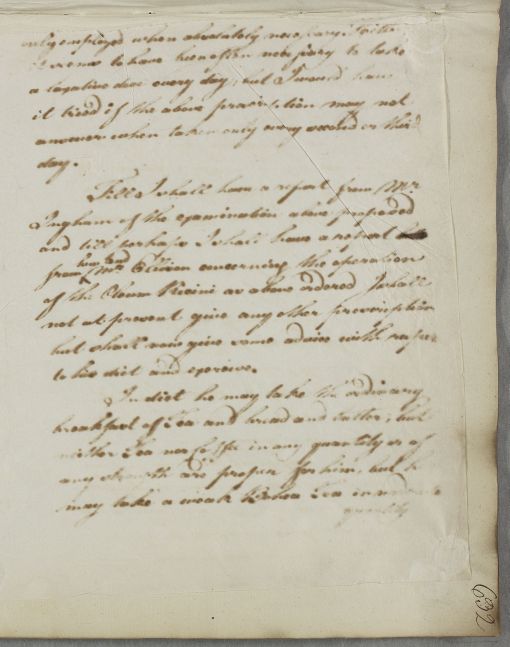 only employed when absolutely necessary. It
seems to have been often necessary to take
a laxative dose every day, but I would have
it tried if the above prescription may not
answer when taken only every second or third
day.
Till I shall have a report from Mr.
Ingham of the examination above proposed
and till perhaps I shall have a report
from him and Mr Ellison concerning the operation
of the Oleum Ricini as above ordered I shall
not at present give any other prescription
but shall now give some advice with respect
to his diet and exercise.
In diet he may take the ordinary
breakfast of Tea and bread and butter; but
neither Tea nor Coffee in any quantity or of
any strength are proper for him, but he
may take a weak Bohea Tea in moderate
quantity
632